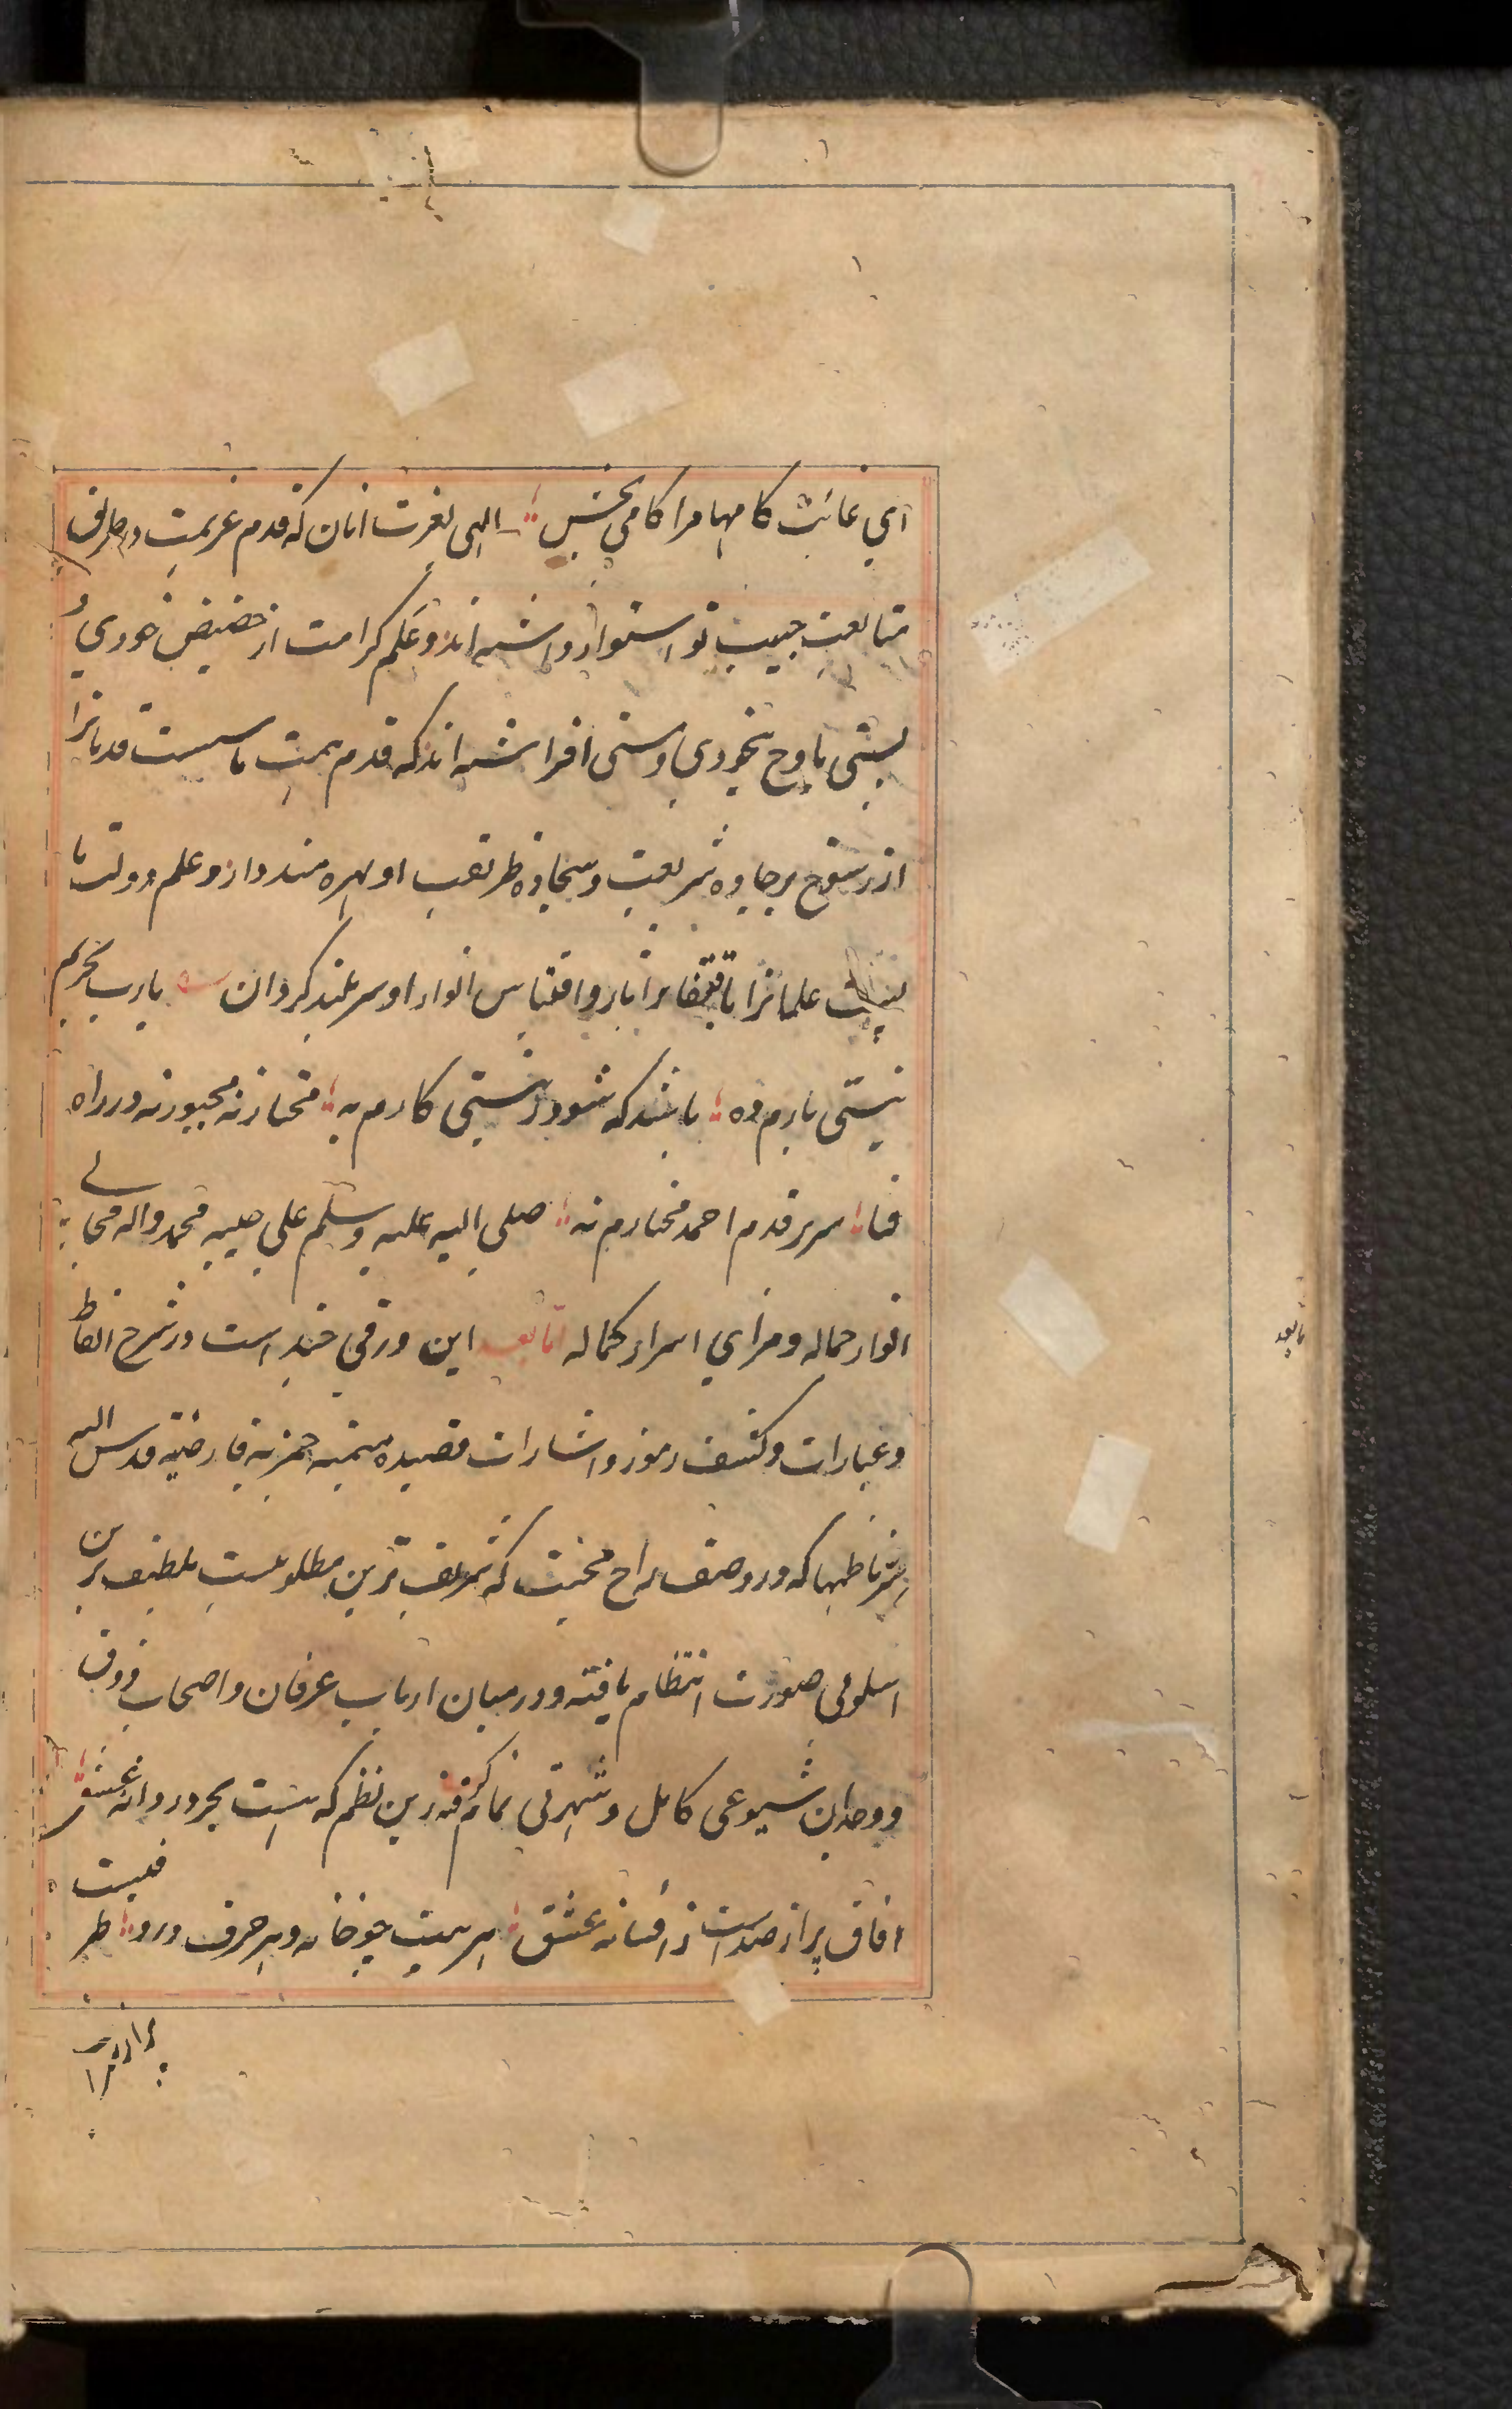 اي غائت كامها مرا كامي بخش الهى بعزت انان كه قدم عزيمت در طريق
متابعت حبيب تو استوار داشته اند و علم كرامت از حضيض خودي و
پستى باوج بيخودي و مستى افراشته اند كه قدم همت ما سست قدمانرا
از رسوخ بر جاده شريعت و سجاده طريقت او بهره مند دار و علم دولت ما
پست علمانرا باقتفا براثار و اقتباس انوار او سر بلند كردان يارب بحريم
نيستى بارم ده باشد كه شود ز نيستى كارم به مختار نه مجبور نه در راه
فنا سر بر قدم احمد مختارم نه صلى الله عليه وسلم على حبيبه محمد واله مجالي
انوار جماله و مراي اسرار كماله امابعد اين ورقي چند است در شرح الفاظ
و عبارات و كشف رموز و اشارات قصيده ميميه خمريه فارضيه قدس الله
سر ناظمها كه در وصف راح محبت كه شريف ترين مطلوبست بلطيف ترين
اسلوبى صورت انتظام يافته و در ميان ارباب عرفان و اصحاب ذوق
و وجدان شيوعى كامل و شهرتى تمام كرفته زين نظم كه هست بحر در دانه عشق
افاق پر از صداست ز افسانه عشق هر بيت چو خانه و هر حرف درو ظرفيست
پر از
مابعد